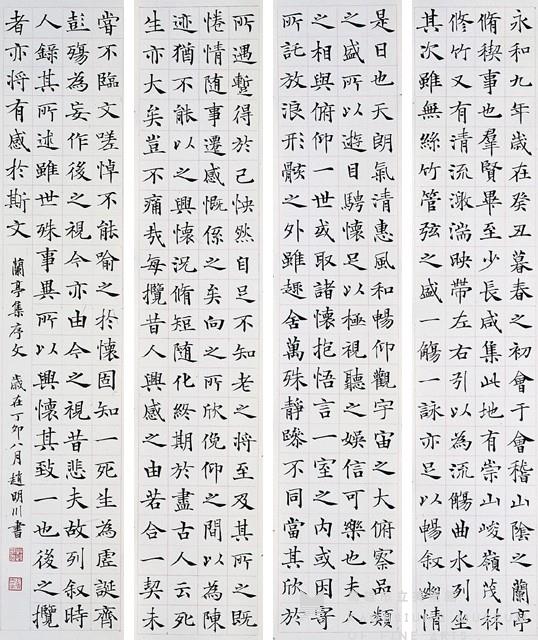 永和九年歲在癸丑暮春之初會于會稽山陰之蘭亭
脩禊事也羣賢畢至少長咸集此地有崇山峻嶺茂林
修竹又有清流激湍映帶左右引以為流觴曲水列坐
其次雖無絲竹管弦之盛一觴一詠亦足以暢敘幽情
是日也天朗氣清惠風和暢仰觀宇宙之大俯察品類
之盛所以遊目騁懷足以極視聽之娛信可樂也夫人
之相與俯仰一世或取諸懷抱悟言一室之內或因寄
所託放浪形骸之外雖趣舍萬殊靜躁不同當其欣於
所遇蹔得於己怏然自足不知老之將至及其所之既
惓情隨事遷感慨係之矣向之所欣俛仰之間以為陳
迹猶不能以之興懷況脩短隨化終期於盡古人云死
生亦大矣豈不痛哉每攬昔人興感之由若合一契未
嘗不臨文嗟悼不能喻之於懷固知一死生為虛誕齊
彭殤為妄作後之視今亦由今之視昔悲夫故列敘時
人錄其所述雖世殊事異所以興懷其致一也後之攬
者亦將有感於斯文 蘭亭集序文 歲在丁卯八月趙明川書